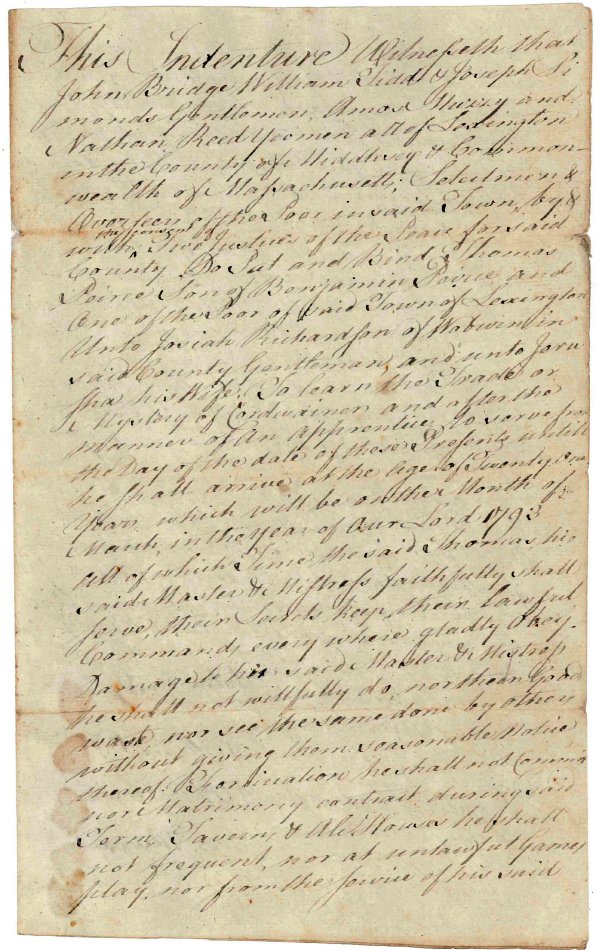 This Indenture Witnesseth that
John Bridge William Tidd & Joseph Si
monds Gentlemen, Amos Muzzy and
Nathan Reed Yeomen all of Lexington
in the County of Middlesex & Common-
wealth of Massachusetts, Selectmen &
Overseers of the Poor in said Town, by &
with the consent of Two Justices of the Peace for said
County Do Put and Bind Thomas
Peirce Son of Benjamin Peirce and
One of the Poor of said Town of Lexington
Unto Josiah Richardson of Woburn in
said County Gentleman, and unto Jeru
sha his Wife, To learn the Trade or
Mystery of Cordwainer and after the
manner of An Apprentice to serve from
the Day of the date of these Presents until
he shall arrive at the Age of Twenty One
Years which will be on the Month of
March, in the year of Our Lord 1793
all of which Time the said Thomas, his
said Master & Mistress faithfully shall
serve, their Secrets keep, their lawful
Commands every where gladly Obey.
Damage to his said Master & Mistress
he shall not willfully do, nor their Goods
waste, nor see the same done by others
without giving them seasonable Notice
thereof. Fornication he shall not Commit
nor Matrimony contract during said
Term, Taverns & AleHouses he shall
not frequent, nor at unlawful Games
play, nor from the service of his said